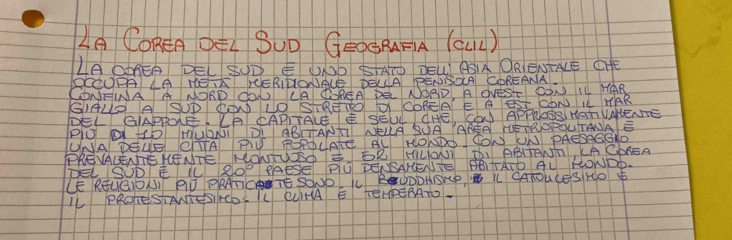 LA COREA DEL SUD GEOGRAFIA (CLIL)
LA COREA DEL SUD È UNO STATO DELL'ASIA ORIENTALE CHE
OCCUPA LA METÀ MERIDIONALE DELLA PENISOLA COREANA.
CONFINA A NORD CON LA COREA DEL NORD, A OVEST CON IL MAR
GIALLO A SUD CON LO STRETTO DI COREA E A EST CON IL MAR
DEL GIAPPONE. LA CAPITALE È SEUL CHE CON APPROSSIMATIVAMENTE
PIÙ DI 10 MILIONI DI ABITANTI NELLA SUA AREA METROPOLITANA È
UNA DELLE CITTÀ PIÙ POPOLATE AL MONDO. CON UN PAESAGGIO
PREVALENTEMENTE MONTUOSO E 52 MILIONI DI ABITANTI LA COREA
DEL SUD È IL 20° PAESE PIÙ DENSAMENTE ABITATO AL MONDO.
LE RELIGIONI PIÙ PRATICATE SONO IL BUDDHISMO, IL CATOLICESIMO E
IL PROTESTANTESIMO. IL CLIMA È TEMPERATO.